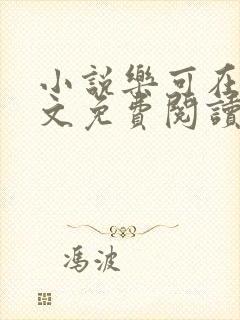 小說樂可在
文免費閱讀
馮波